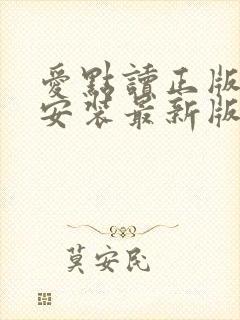 愛點讀正版
安裝最新版
莫安民